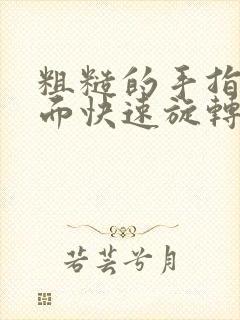 粗糙的手指
而快速旋轉
若芸兮月